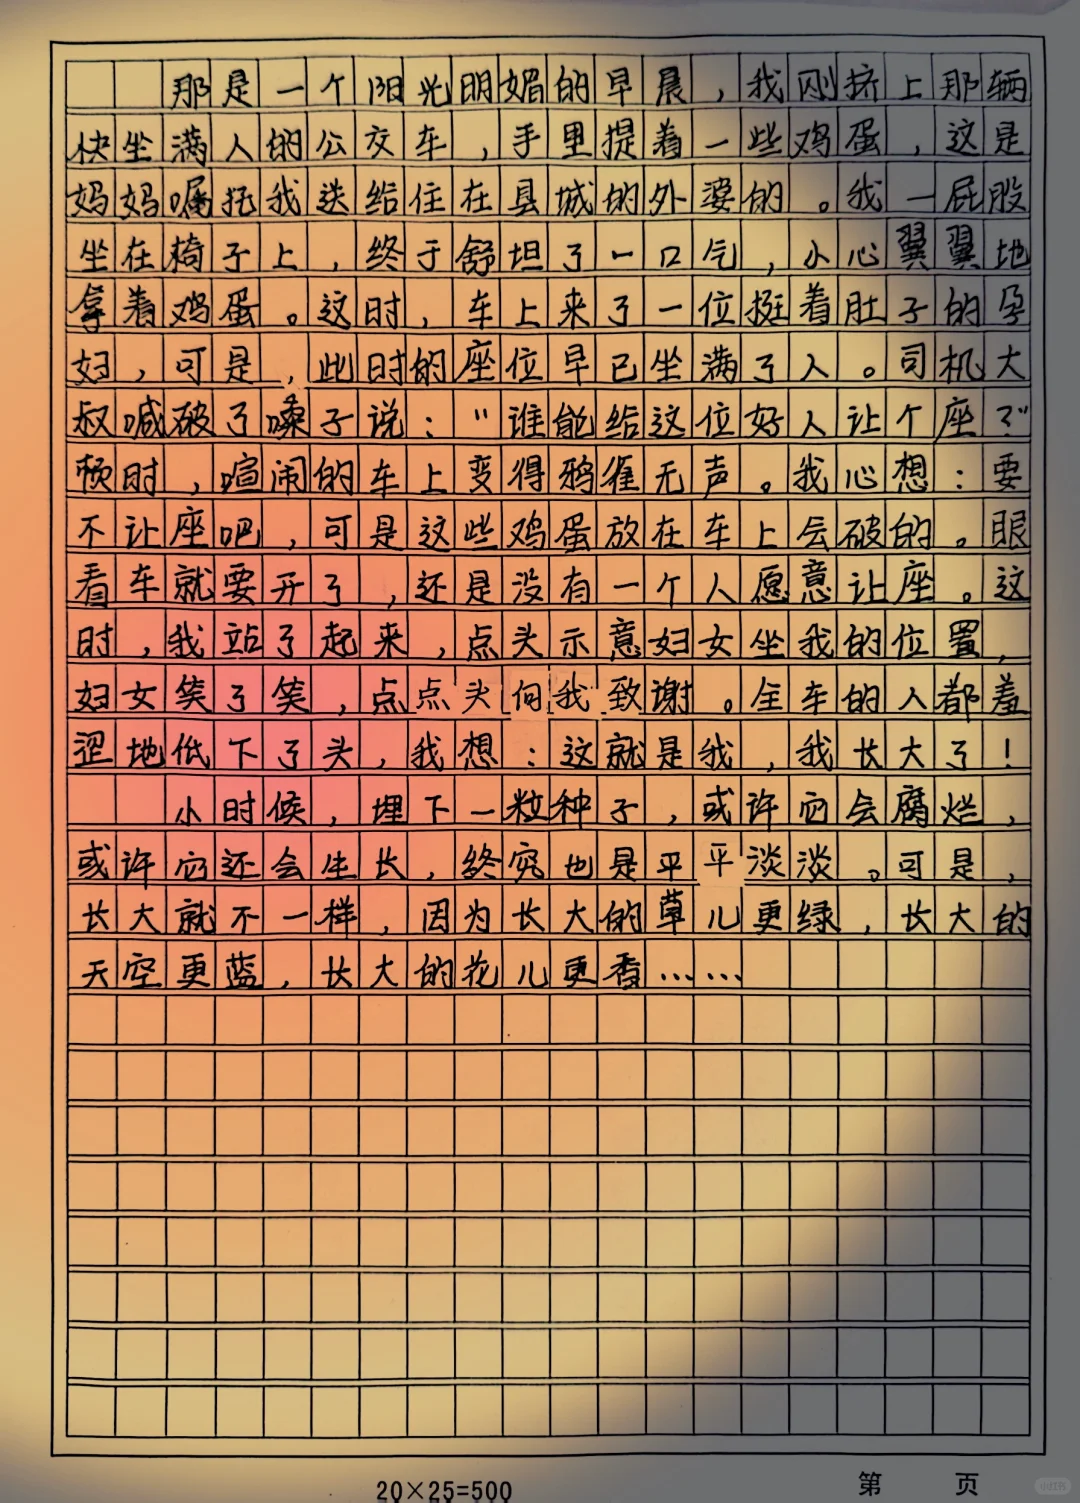 那是一个阳光明媚的早晨，我刚挤上那辆
快坐满人的公交车，手里提着一些鸡蛋，这是
妈妈嘱托我送给住在县城的外婆的。我一屁股
坐在椅子上，终于舒坦了一口气，小心翼翼地
拿着鸡蛋。这时，车上来了一位挺着肚子的孕
妇，可是，此时的座位早已坐满了人。司机大
叔喊破了嗓子说：“谁能给这位好人让个座？”
顿时，喧闹的车上变得鸦雀无声。我心想：要
不让座吧，可是这些鸡蛋放在车上会破的。眼
看车就要开了，还是没有一个人愿意让座。这
时，我站了起来，点头示意妇女坐我的位置，
妇女笑了笑，点点头向我致谢。全车的人都羞
涩地低下了头，我想：这就是我，我长大了！
小时候，埋下一粒种子，或许它会腐烂，
或许它还会生长，终究也是平平淡淡。可是，
长大就不一样，因为长大的草儿更绿，长大的
天空更蓝，长大的花儿更香……
20×25=500
第 页